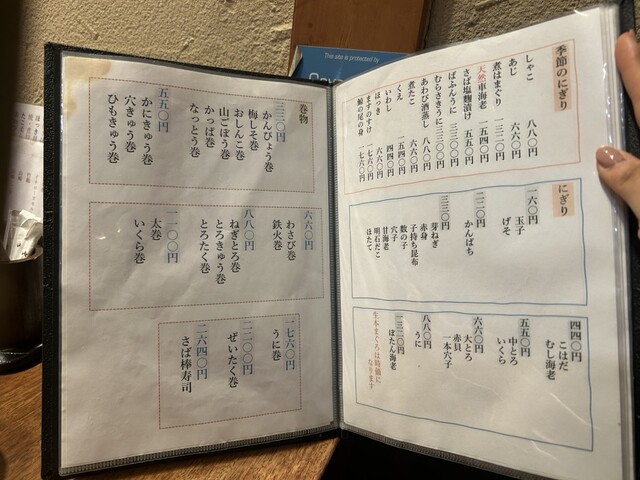 This site is protected by
季節のにぎり
しゃこ 八八〇円
あじ 六六〇円
煮はまぐり 一三二〇円
天然車海老 一五四〇円
さば塩麹漬け 五五〇円
ばふんうに 三三〇〇円
むらさきうに 三三〇〇円
あわび酒蒸し 八八〇円
煮たこ 六六〇円
くえ 一五四〇円
いわし 四四〇円
ほっき 六六〇円
ますのすけ 一七六〇円
鯨の尾の身 一七六〇円
にぎり
一六〇円
玉子
げそ
二二〇円
かんぱち
三三〇円
芽ねぎ
赤身
子持ち昆布
数の子
穴子
甘海老
明石だこ
ほたて
四四〇円
こはだ
むし海老
五五〇円
中とろ
いくら
六六〇円
大とろ
赤貝
一本穴子
八八〇円
うに
一三二〇円
ぼたん海老
生本まぐろは時価になります
巻物
三三〇円
かんぴょう巻
梅しそ巻
おしんこ巻
山ごぼう巻
かっぱ巻
なっとう巻
五五〇円
かにきゅう巻
穴きゅう巻
ひもきゅう巻
六六〇円
わさび巻
鉄火巻
八八〇円
ねぎとろ巻
とろきゅう巻
とろたく巻
一一〇〇円
太巻
いくら巻
一七六〇円
うに巻
二二〇〇円
ぜいたく巻
二六四〇円
さば棒寿司